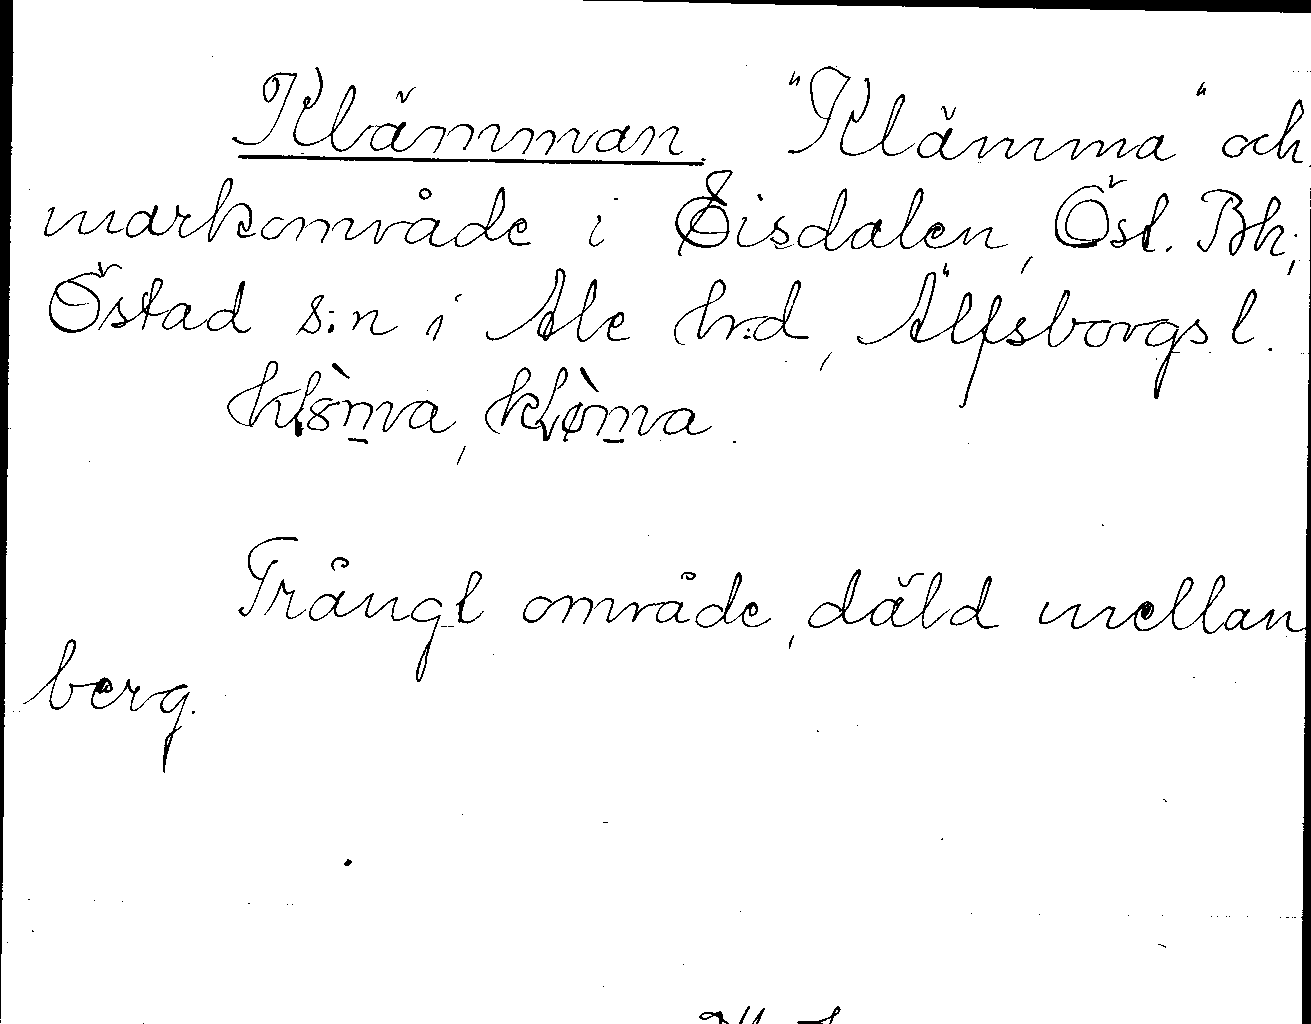 Klämman "Klämma" och
markområde i Sisdalen, Öst. Bh,
Östad s:n i Ale h:d, Älfsborgs l.
Trångt område, däld mellan
berg.